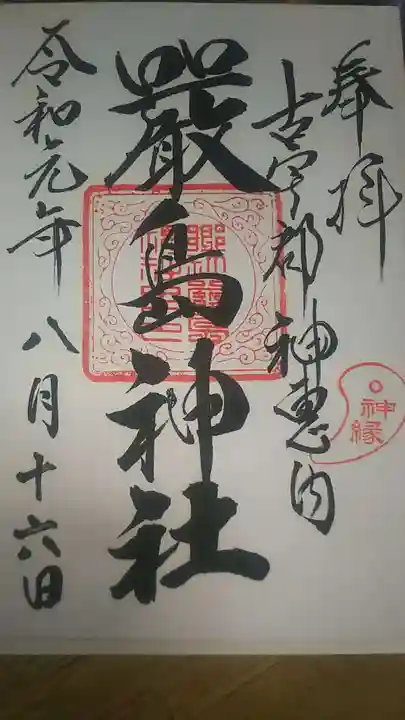 奉拝
古宇郡神恵内
神縁
嚴島神社
令和元年八月十六日